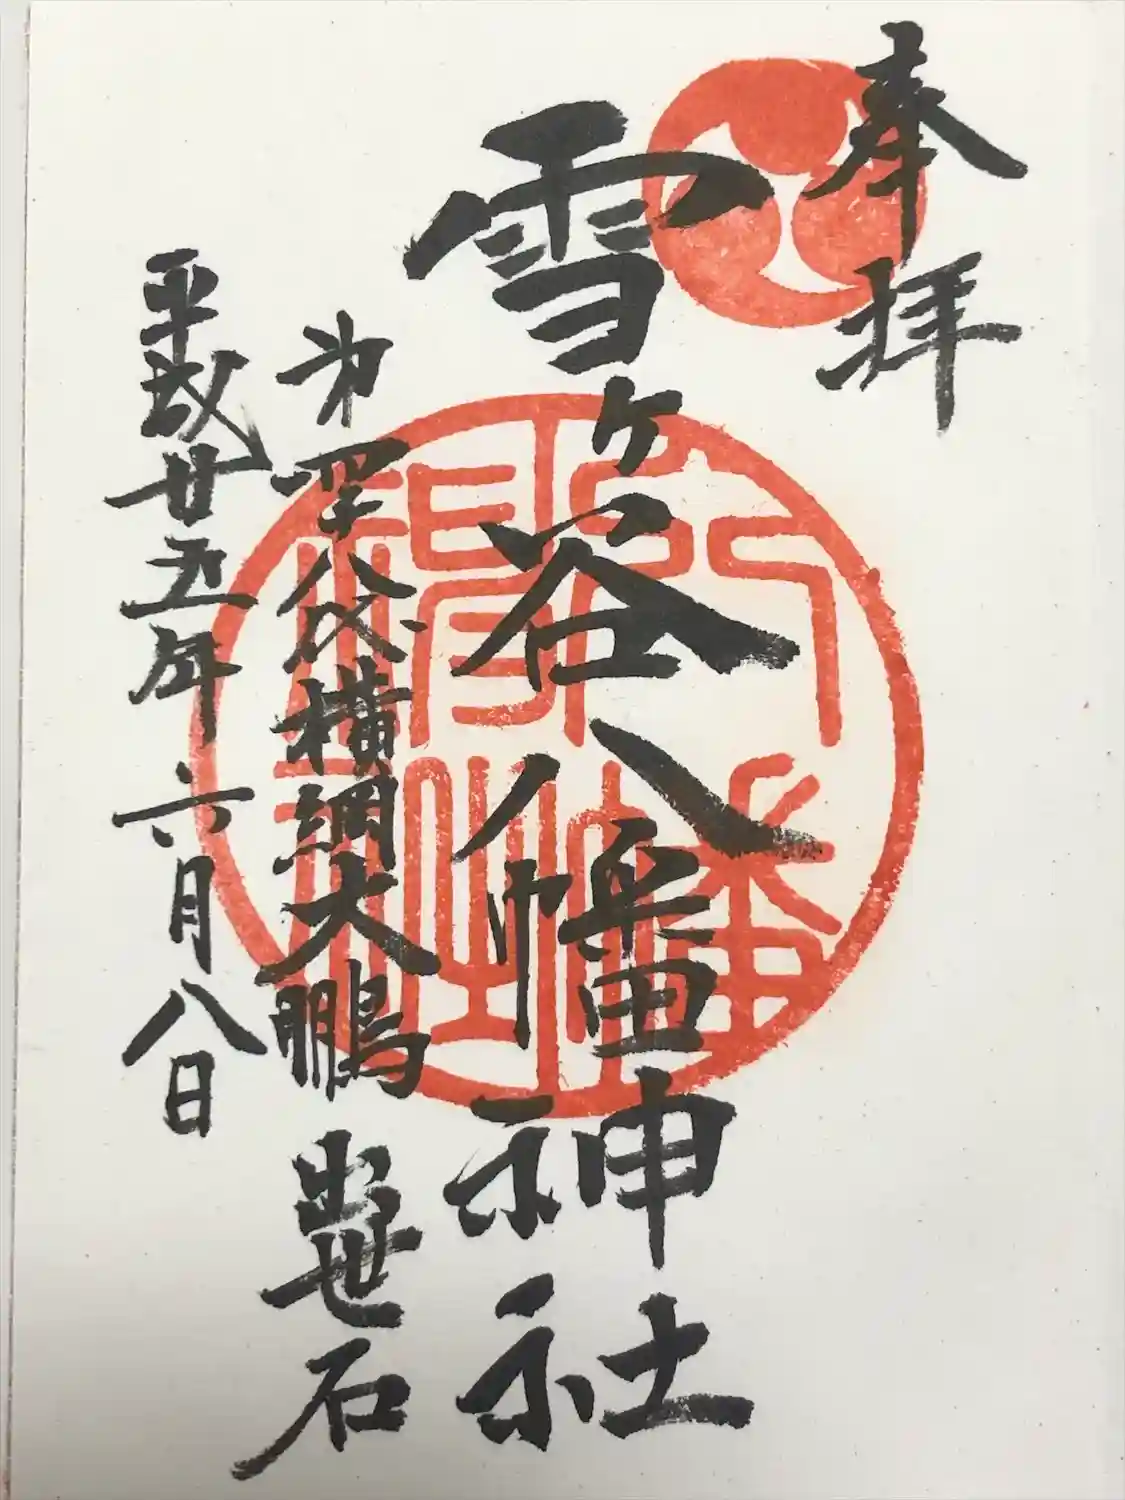 奉拝
雪ヶ谷八幡神社
第四十八代横綱大鵬出世石
平成廿五年六月八日
八幡神社